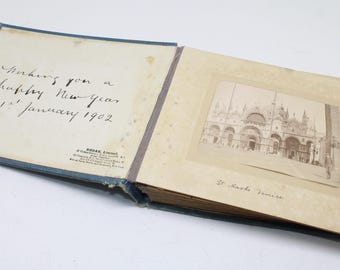 Wishing you a
happy New Year
1st January 1902
KODAK, Limited.
St Marks Venice